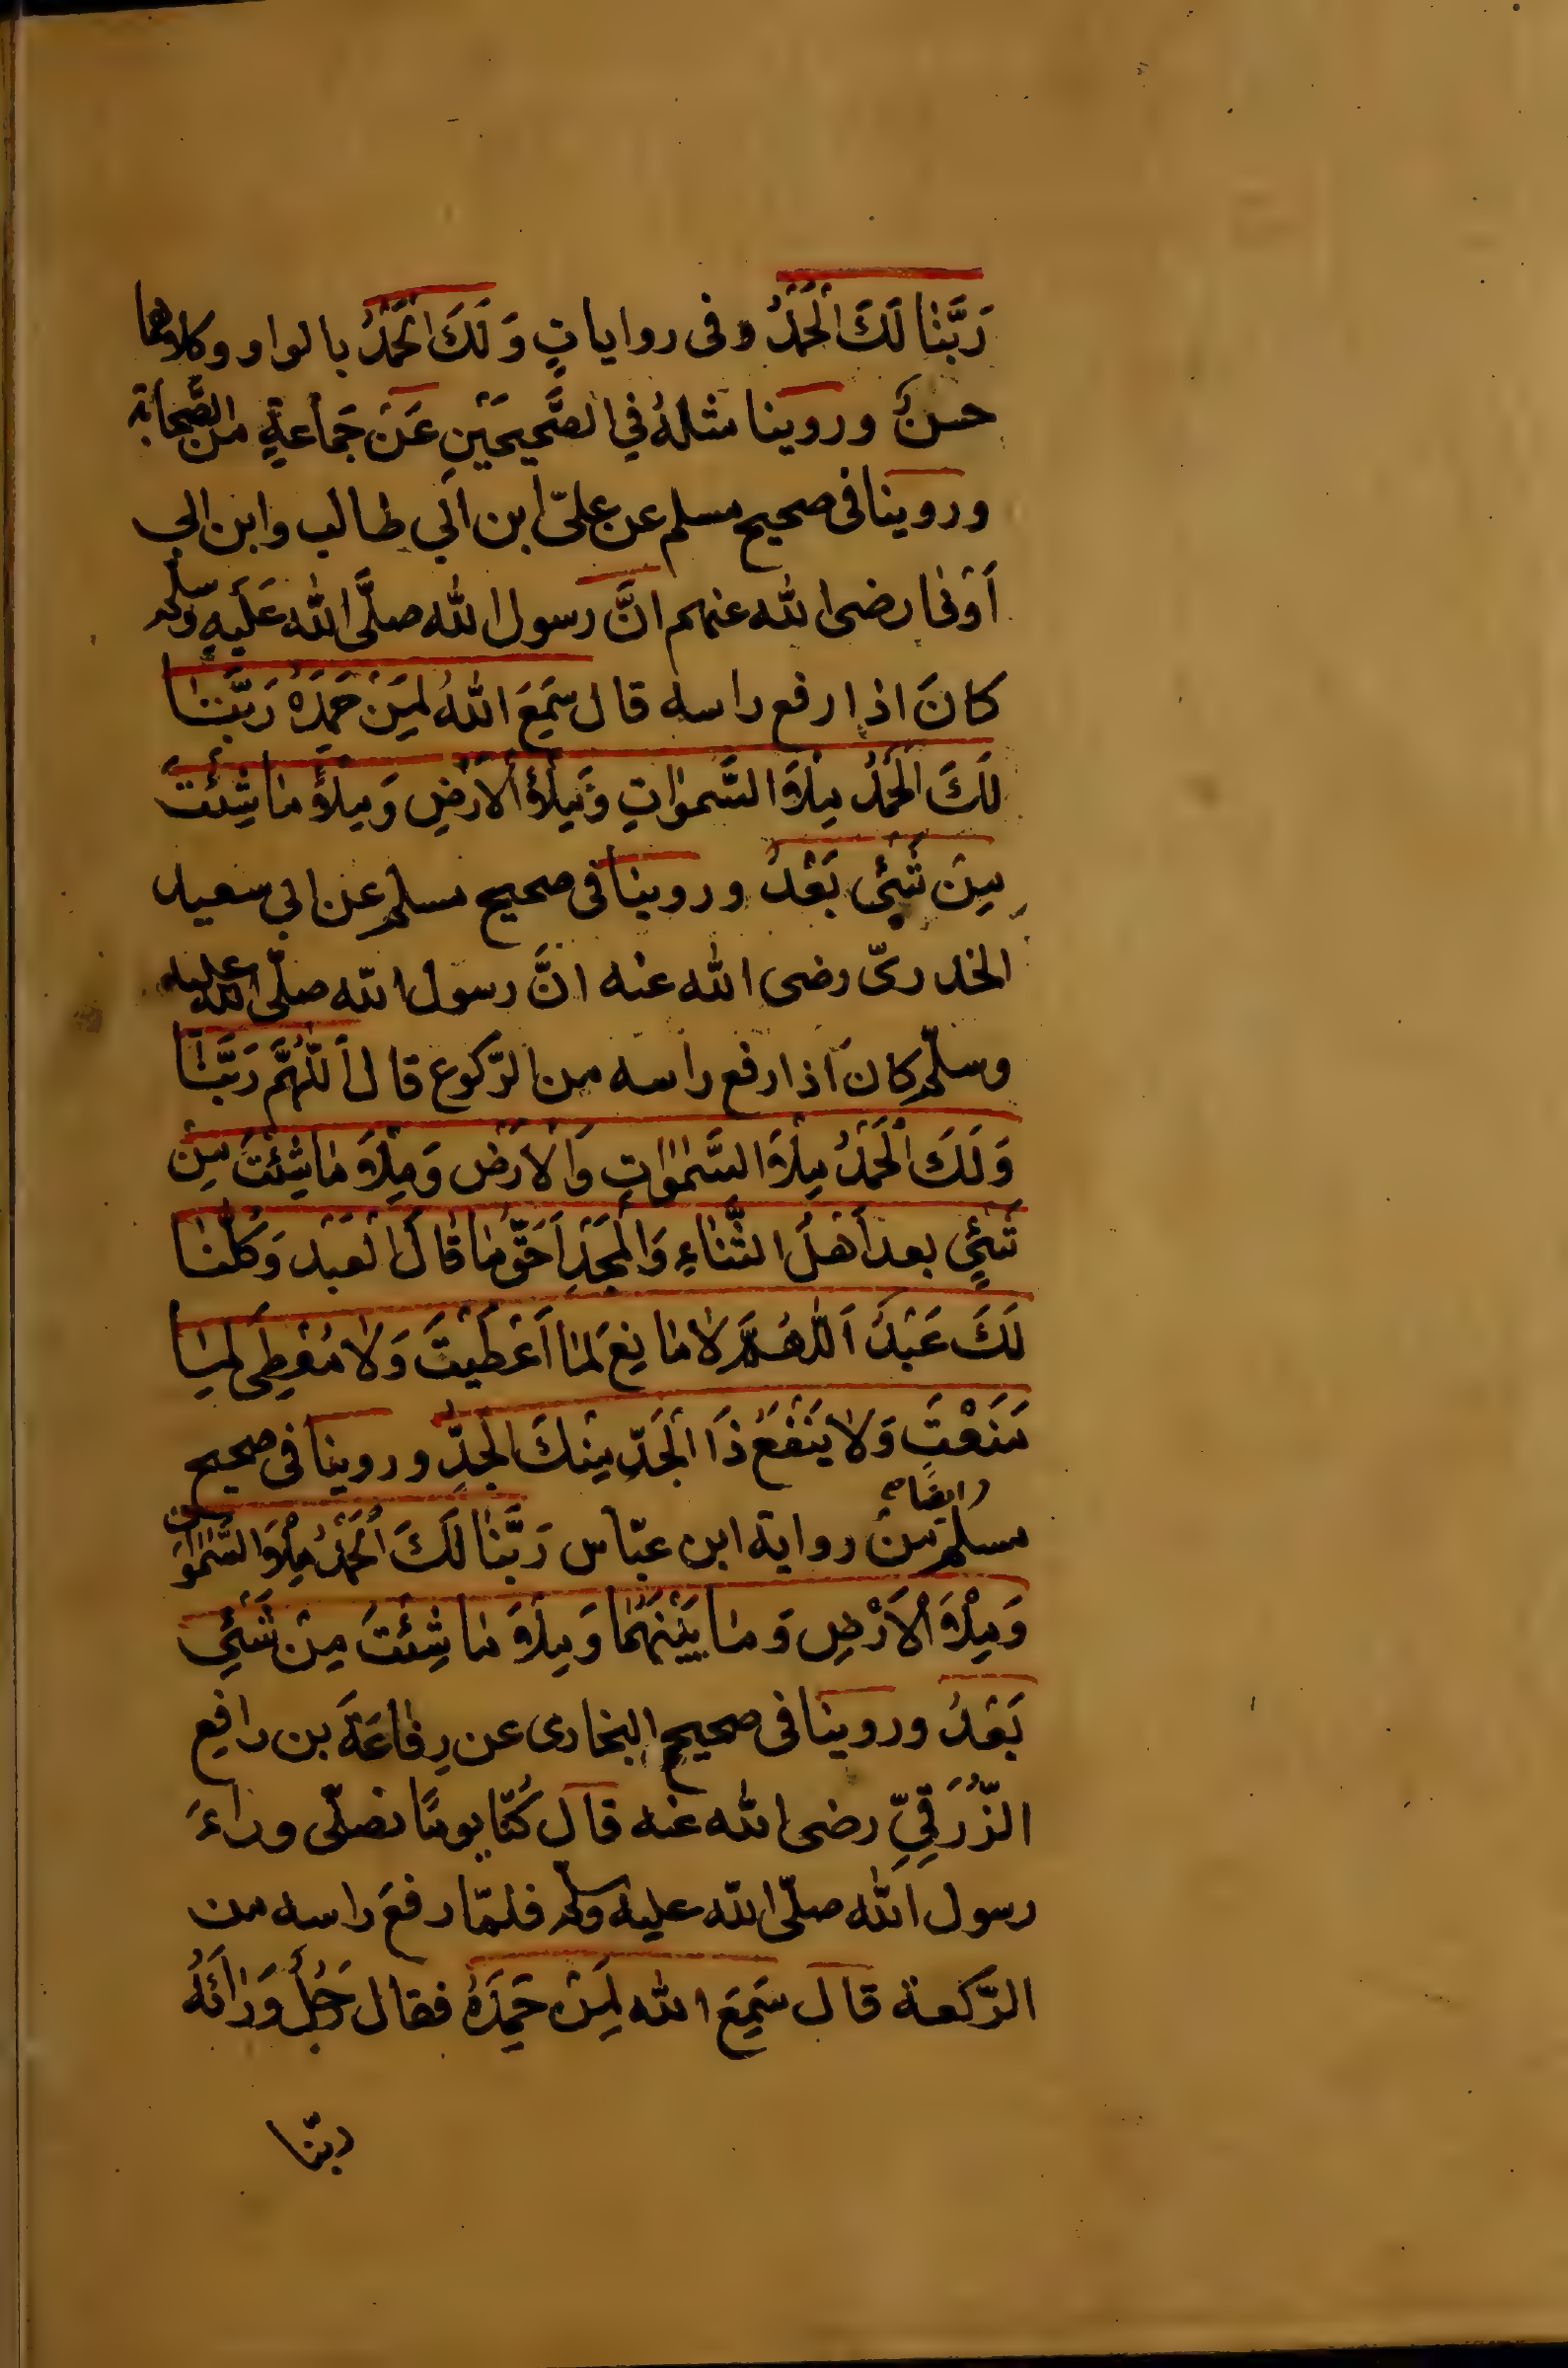 رَبَّنَا لَكَ الْحَمْدُ وفى رواياتٍ وَلَكَ الْحَمْدُ بالواو وكلاهما
حسنٌ وروينا مثلهُ في الصَّحيحَيْنِ عَنْ جَماعةٍ من الصَّحابة
وروينا فى صحيح مسلم عن علىّ ابن أبي طالب وابن ابى
أَوْفٰى رضى الله عنهم انَّ رسول الله صلَّى الله عَلَيهِ وسلّم
كانَ اذا رفع راسه قال سَمِعَ اللهُ لِمَنْ حَمِدَهُ رَبَّنَا
لَكَ الْحَمْدُ مِلْأَ السَّمٰوَاتِ وَمِلْأَ الْأَرْضِ وَمِلْأَ مَا شِئْتَ
مِنْ شَيْئٍ بَعْدُ وروينا فى صحيح مسلم عن ابي سعيد
الخدرىّ رضى الله عنه انَّ رسول الله صلّى الله عليه
وسلّم كانَ اذا رفع راسه من الرّكوع قال اَللّٰهُمَّ رَبَّنَا
وَلَكَ الْحَمْدُ مِلْأَ السَّمٰوَاتِ وَالْأَرْضِ وَمِلْأَ مَا شِئْتَ مِنْ
شَيْئٍ بعد أَهْلَ الثَّنَاءِ وَالْمَجْدِ أَحَقُّ مَا قَالَ الْعَبْدُ وَكُلُّنَا
لَكَ عَبْدٌ اَللّٰهُمَّ لَا مَانِعَ لِمَا أَعْطَيْتَ وَلَا مُعْطِىَ لِمَا
مَنَعْتَ وَلَا يَنْفَعُ ذَا الْجَدِّ مِنْكَ الْجَدُّ وروينا فى صحيح
مسلم ايضًا مِنْ رواية ابن عبّاس رَبَّنَا لَكَ الْحَمْدُ مِلْأَ السَّمٰوَاتِ
وَمِلْأَ الْأَرْضِ وَمَا بَيْنَهُمَا وَمِلْأَ مَا شِئْتَ مِنْ شَيْئٍ
بَعْدُ وروينا فى صحيح البخارى عن رِفَاعَةَ بن رافِعٍ
الزُّرَقِيِّ رضى الله عنه قال كُنّا يومًا نصلّى وراءَ
رسول الله صلّى الله عليه وسلّم فلمّا رفعَ راسه من
الرّكعة قال سَمِعَ الله لِمَنْ حَمِدَهُ فقال رَجُلٌ وَرَائَهُ
ربّنا